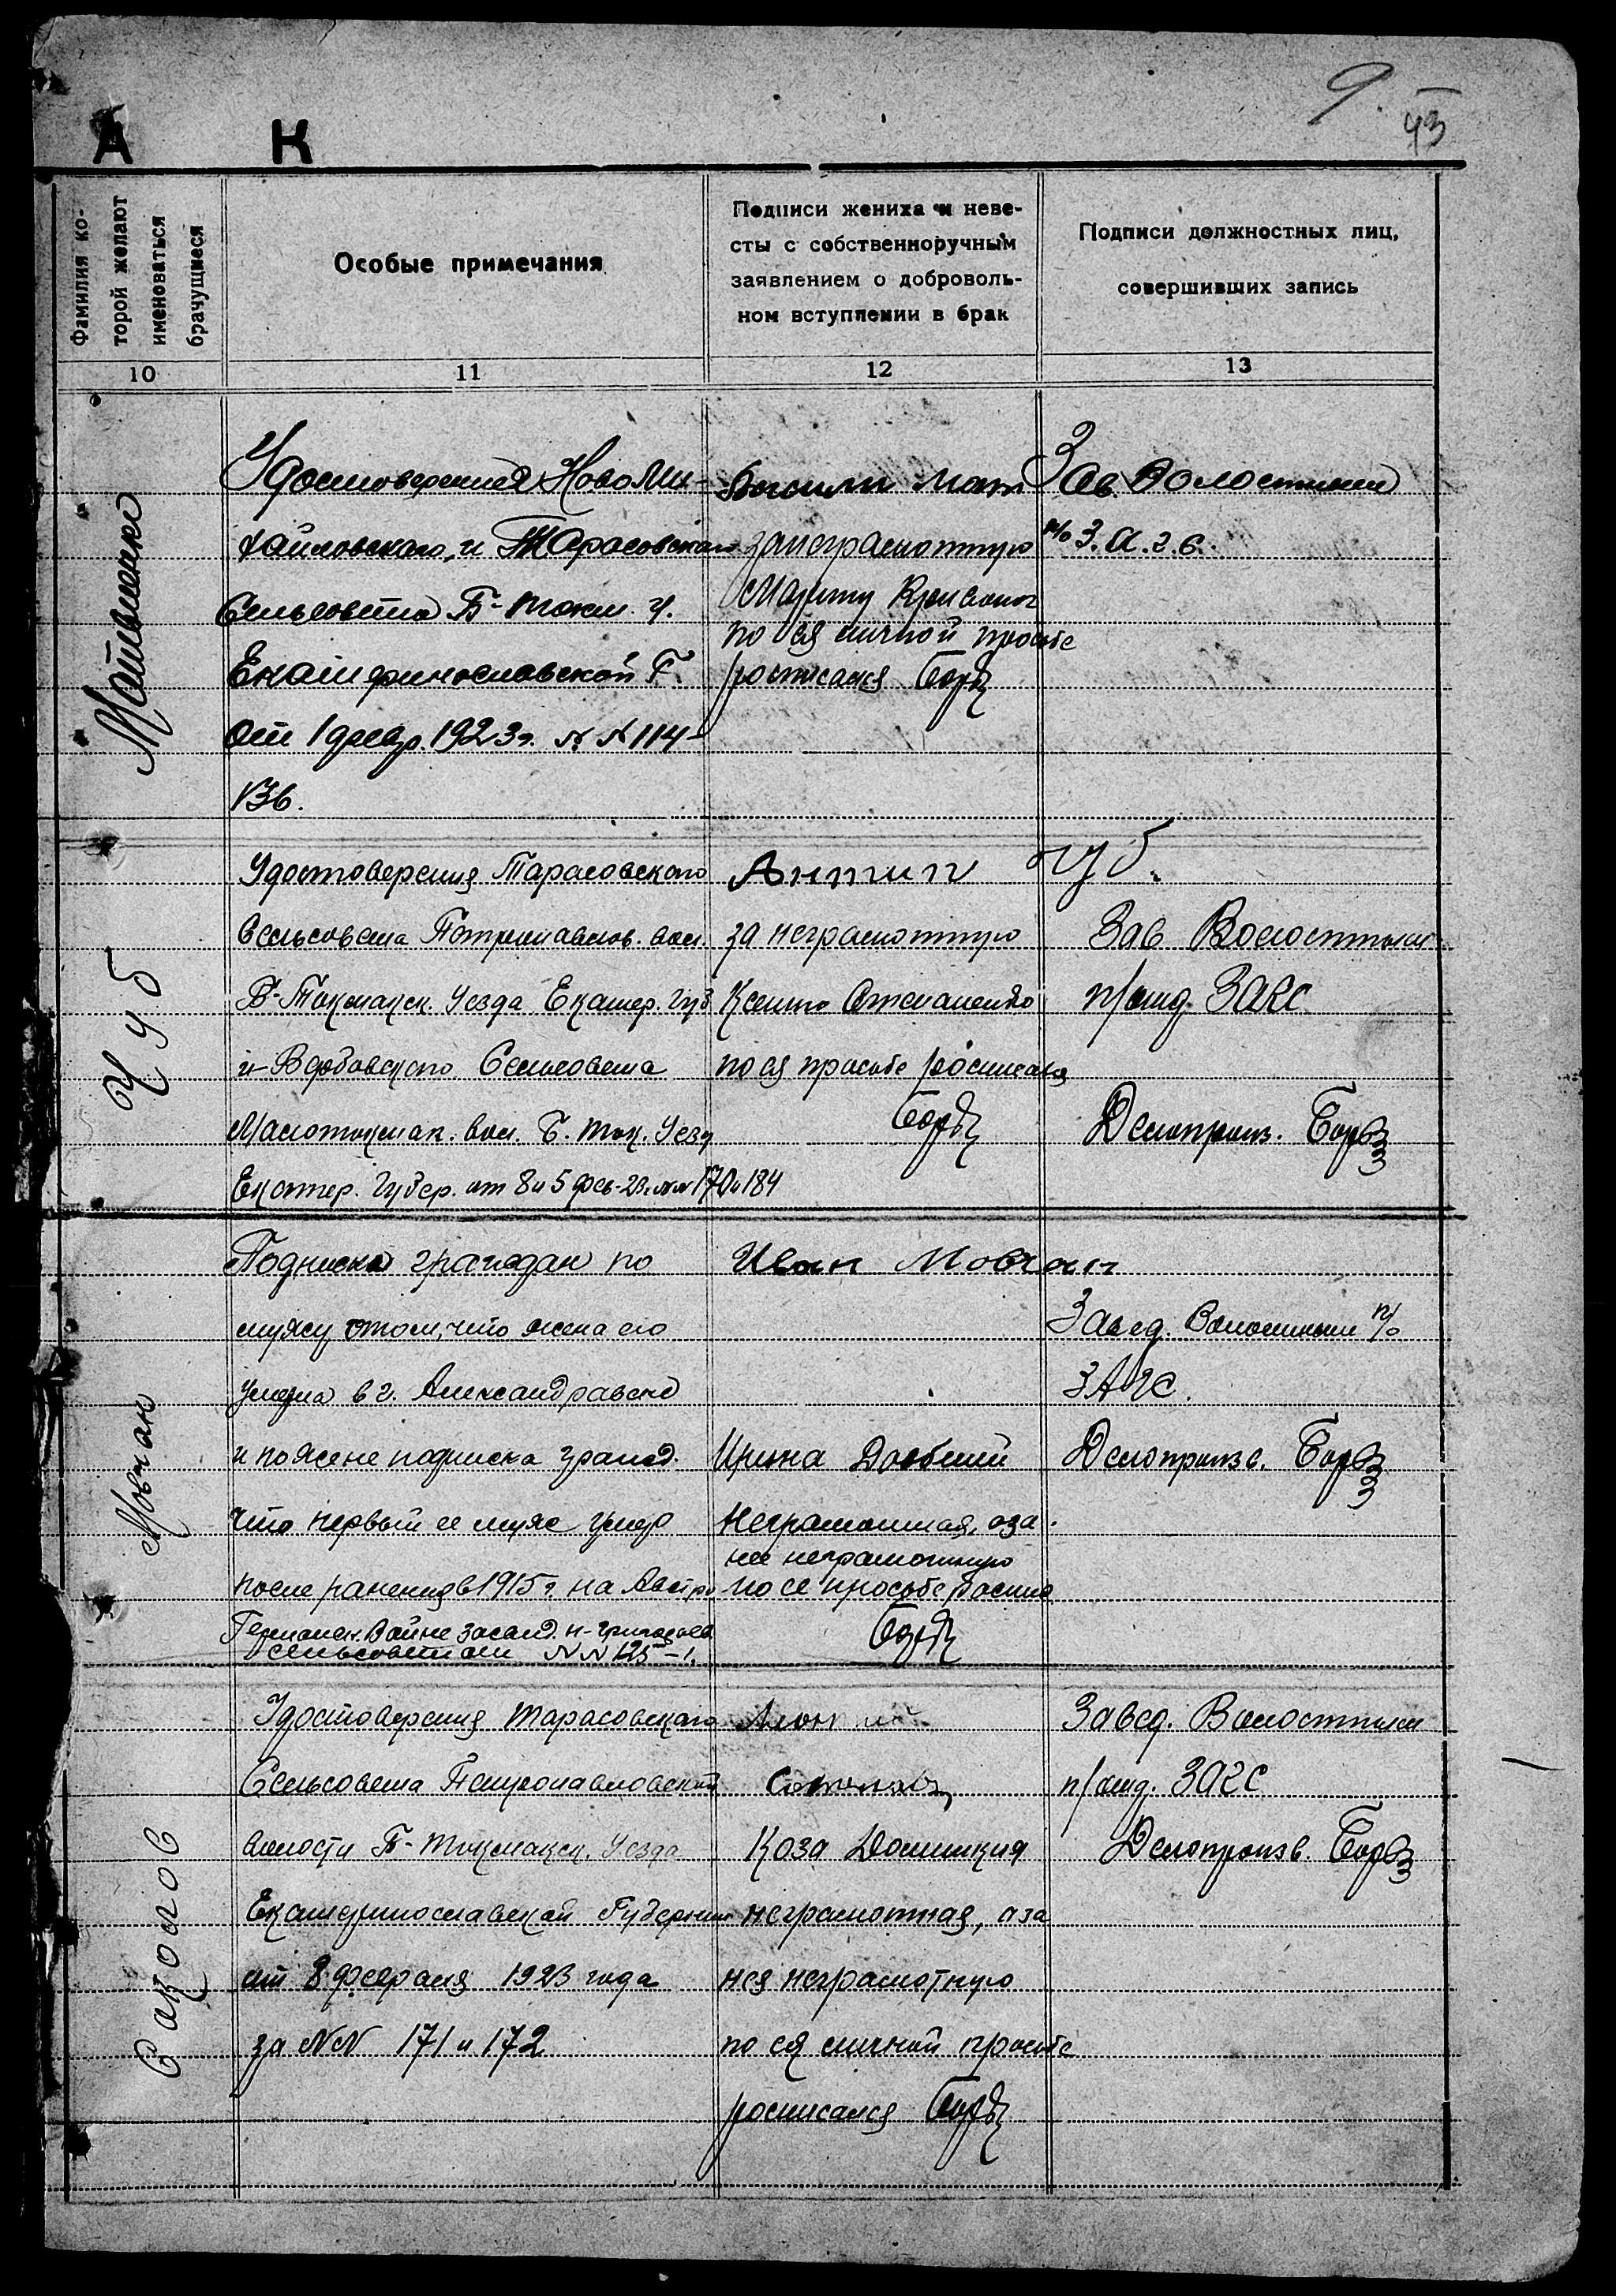 9. 43
А К
Фамилия ко-
торой желают
именоваться
брачущиеся
Особые примечания
Подписи жениха и неве-
сты с собственноручным
заявлением о доброволь-
ном вступлении в брак
Подписи должностных лиц,
совершивших запись
10 11 12 13
Матвиенко
Удостоверения НовоМи-
хайловского, и Тарасовского
Сельсовета Б-Токм. у.
Екатеринославской Г.
от 1 февр. 1923 г. N N 114-
136.
за неграмотную
Марину
по ея личной просьбе
росписался
Зав. Волостным
п/о З.А.Г.С.
Чуб
Удостоверения Тарасовского
Сельсовета Петропавлов. вол.
Б-Токмакск. Уезда Екатер. Губ
и Вербовского Сельсовета
Малотокмак. вол. Б. Ток. Уезд
Екатер. Губер. от 8 и 5 фев-23 г. NN 170 и 184
Антип Чуб.
за неграмотную
Ксению Степаненко
по ея просьбе росписался
Зав Волостным
п/отд. ЗАГС
Делопроизв.
Мовчан
Подписка граждан по
мужу о том, что жена его
умерла в г. Александравске
и по жене подписка гражд.
что первый ее муж умер
после ранения в 1915 г. на Австро
Германск. Войне засвид.
Сельсоветом NN 125-1.
Иван Мовчан
Ирина
Неграмотная, а за
нее неграмотную
по ее просьбе Роспис
Завед. Волостным п/о
ЗАГС.
Делопроизв.
Саколов
Удостоверения Тарасовского
Сельсовета Петропавловской
волости Б-Токмакск. Уезда
Екатеринославской Губернии
от 8 февраля 1923 года
за NN 171 и 172
Коза
неграмотная, а за
нея неграмотную
по ея личной просьбе
росписался
Завед. Волостным
п/отд. ЗАГС
Делопроизв.